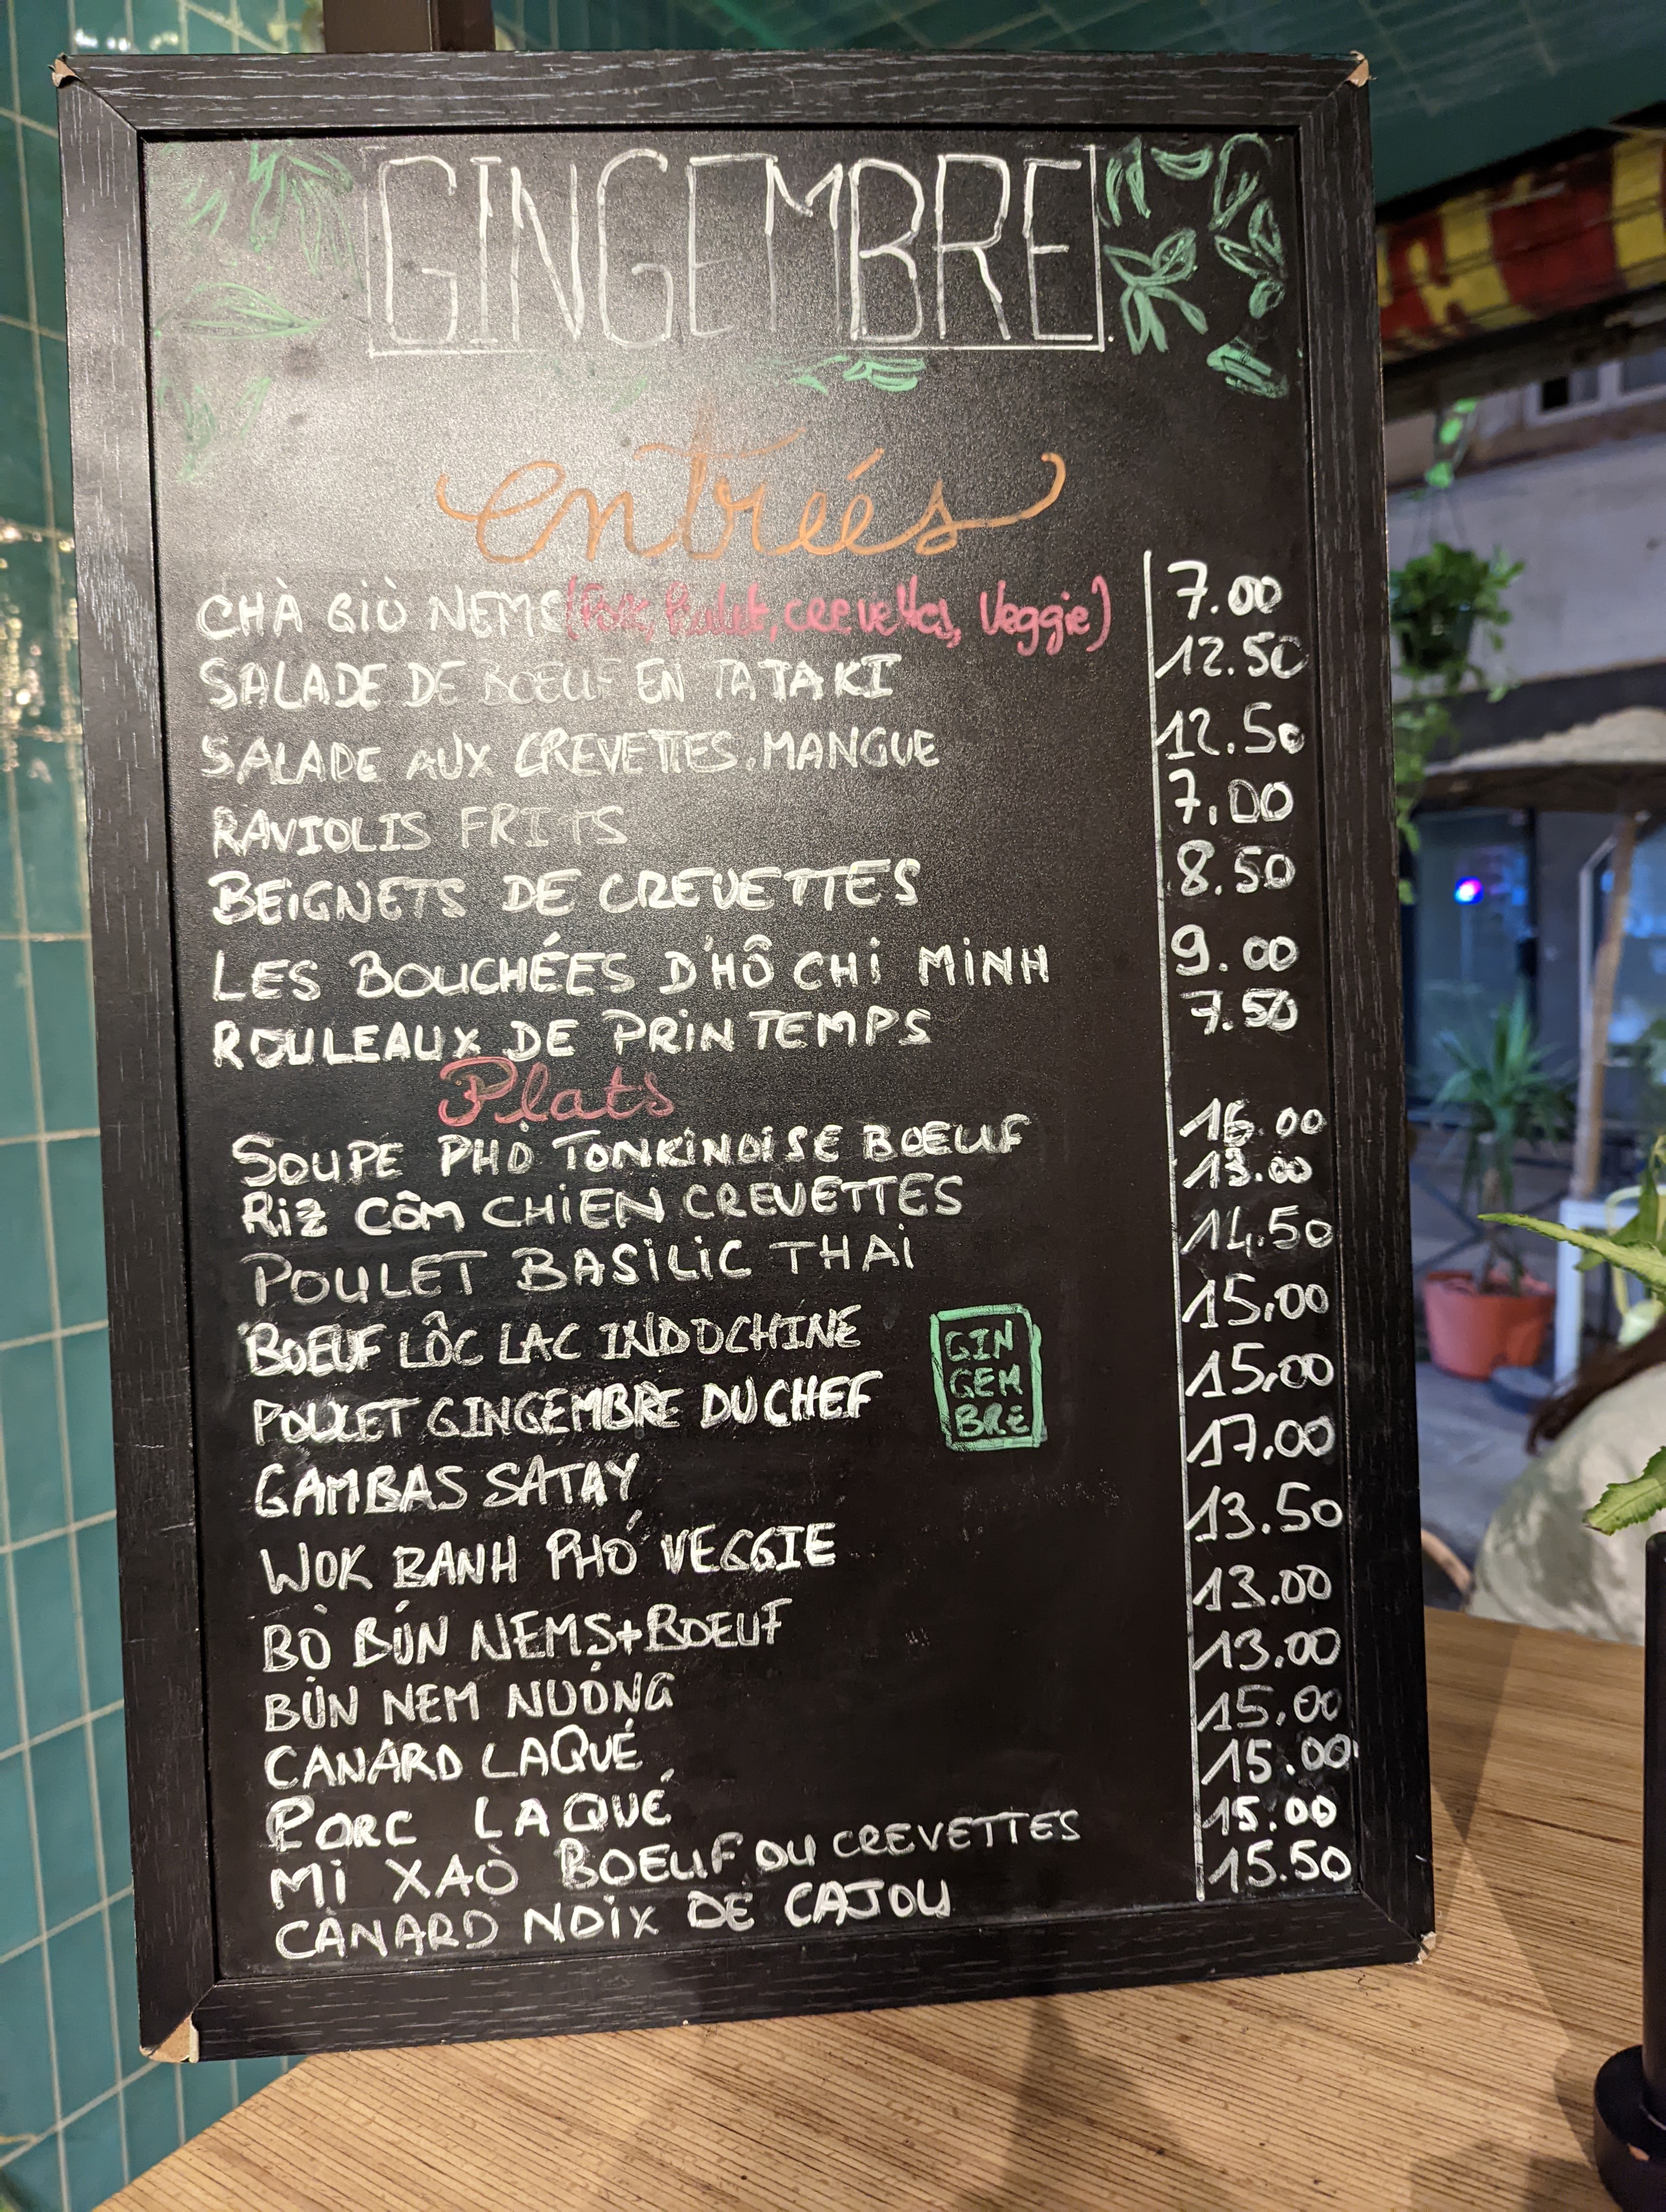 GINGEMBRE
entrées
CHÀ GIÒ NEMS (Porc, Poulet, crevettes, Veggie) 7.00
SALADE DE BOEUF EN TATAKI 12.50
SALADE AUX CREVETTES. MANGUE 12.50
RAVIOLIS FRITS 7.00
BEIGNETS DE CREVETTES 8.50
LES BOUCHÉES D'HÔ CHI MINH 9.00
ROULEAUX DE PRINTEMPS 7.50
Plats
SOUPE PHỞ TONKINOISE BOEUF 16.00
RIZ CÔM CHIEN CREVETTES 13.00
POULET BASILIC THAI 14.50
BOEUF LÔC LAC INDOCHINE 15.00
POULET GINGEMBRE DU CHEF 15.00
GIN
GEM
BRE
GAMBAS SATAY 17.00
WOK BANH PHÓ VEGGIE 13.50
BÒ BÚN NEMS+BOEUF 13.00
BÚN NEM NUỚNG 13.00
CANARD LAQUÉ 15.00
PORC LAQUÉ 15.00
MI XAÒ BOEUF OU CREVETTES 15.00
CANARD NOIX DE CAJOU 15.50